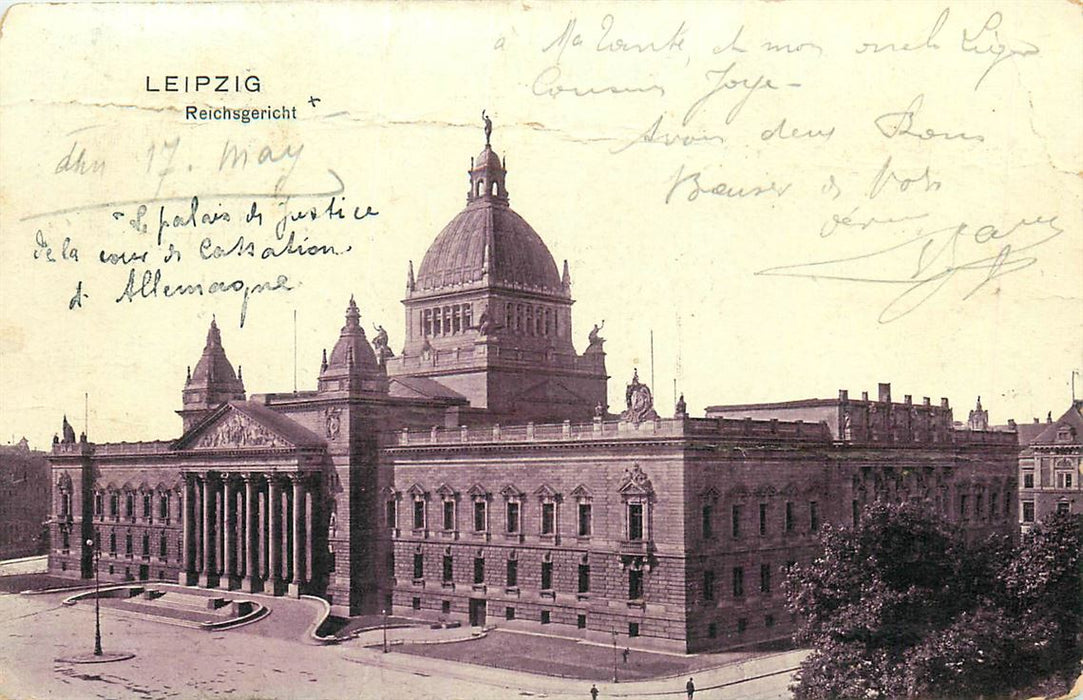 LEIPZIG
Reichsgericht +
den 17. May
Le palais de Justice
de la cour de Cassation
d'Allemagne
à Ma Tante et mon oncle
Cousins Joye
Avan deux Bons
Baiser de Vots